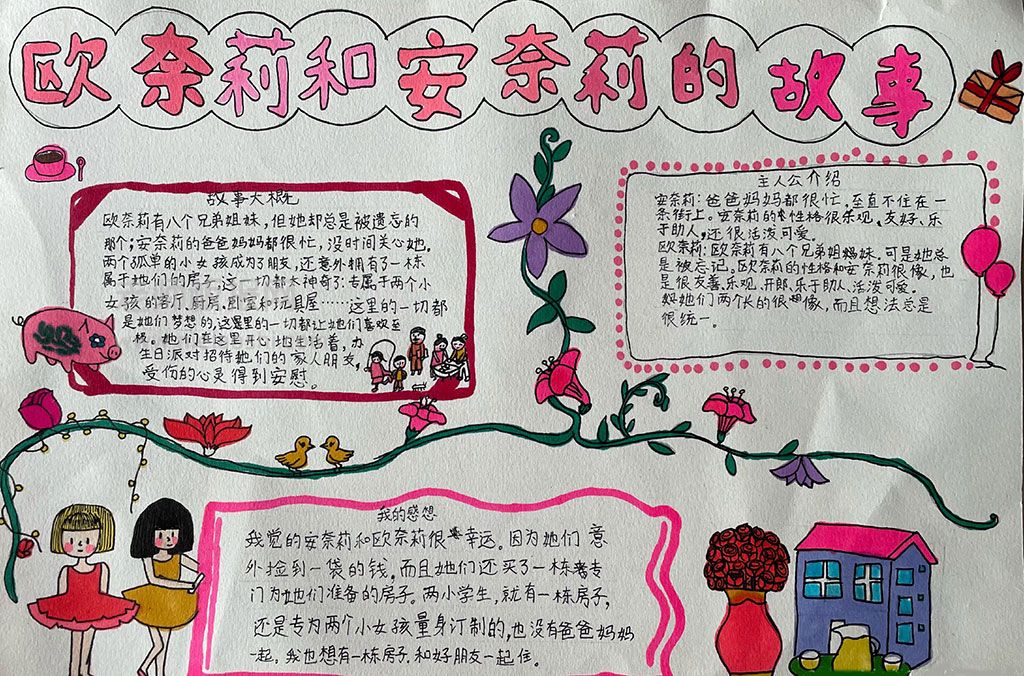 欧奈莉和安奈莉的故事
故事大概
欧奈莉有八个兄弟姐妹，但她却总是被遗忘的
那个；安奈莉的爸爸妈妈都很忙，没时间关心她。
两个孤单的小女孩成为了朋友，还意外拥有了一栋
属于她们的房子。这一切都太神奇了：专属于两个小
女孩的客厅、厨房、卧室和玩具屋……这里的一切都
是她们梦想的，这里的一切都让她们喜欢至
极。她们在这里开心地生活着，办
生日派对招待她们的家人朋友，
受伤的心灵得到安慰。
主人公介绍
安奈莉：爸爸妈妈都很忙，至直不住在一
条街上。安奈莉的性格很乐观、友好、乐
于助人，还很活泼可爱。
欧奈莉：欧奈莉有八个兄弟姐妹，可是她总
是被忘记。欧奈莉的性格和安奈莉很像，也
是很友善、乐观、开郎、乐于助人、活泼可爱。
她们两个长的很像，而且想法总是
很统一。
我的感想
我觉的安奈莉和欧奈莉很幸运。因为她们意
外捡到一袋的钱，而且她们还买了一栋专
门为她们准备的房子。两小学生，就有一栋房子，
还是专为两个小女孩量身订制的，也没有爸爸妈妈
一起，我也想有一栋房子，和好朋友一起住。